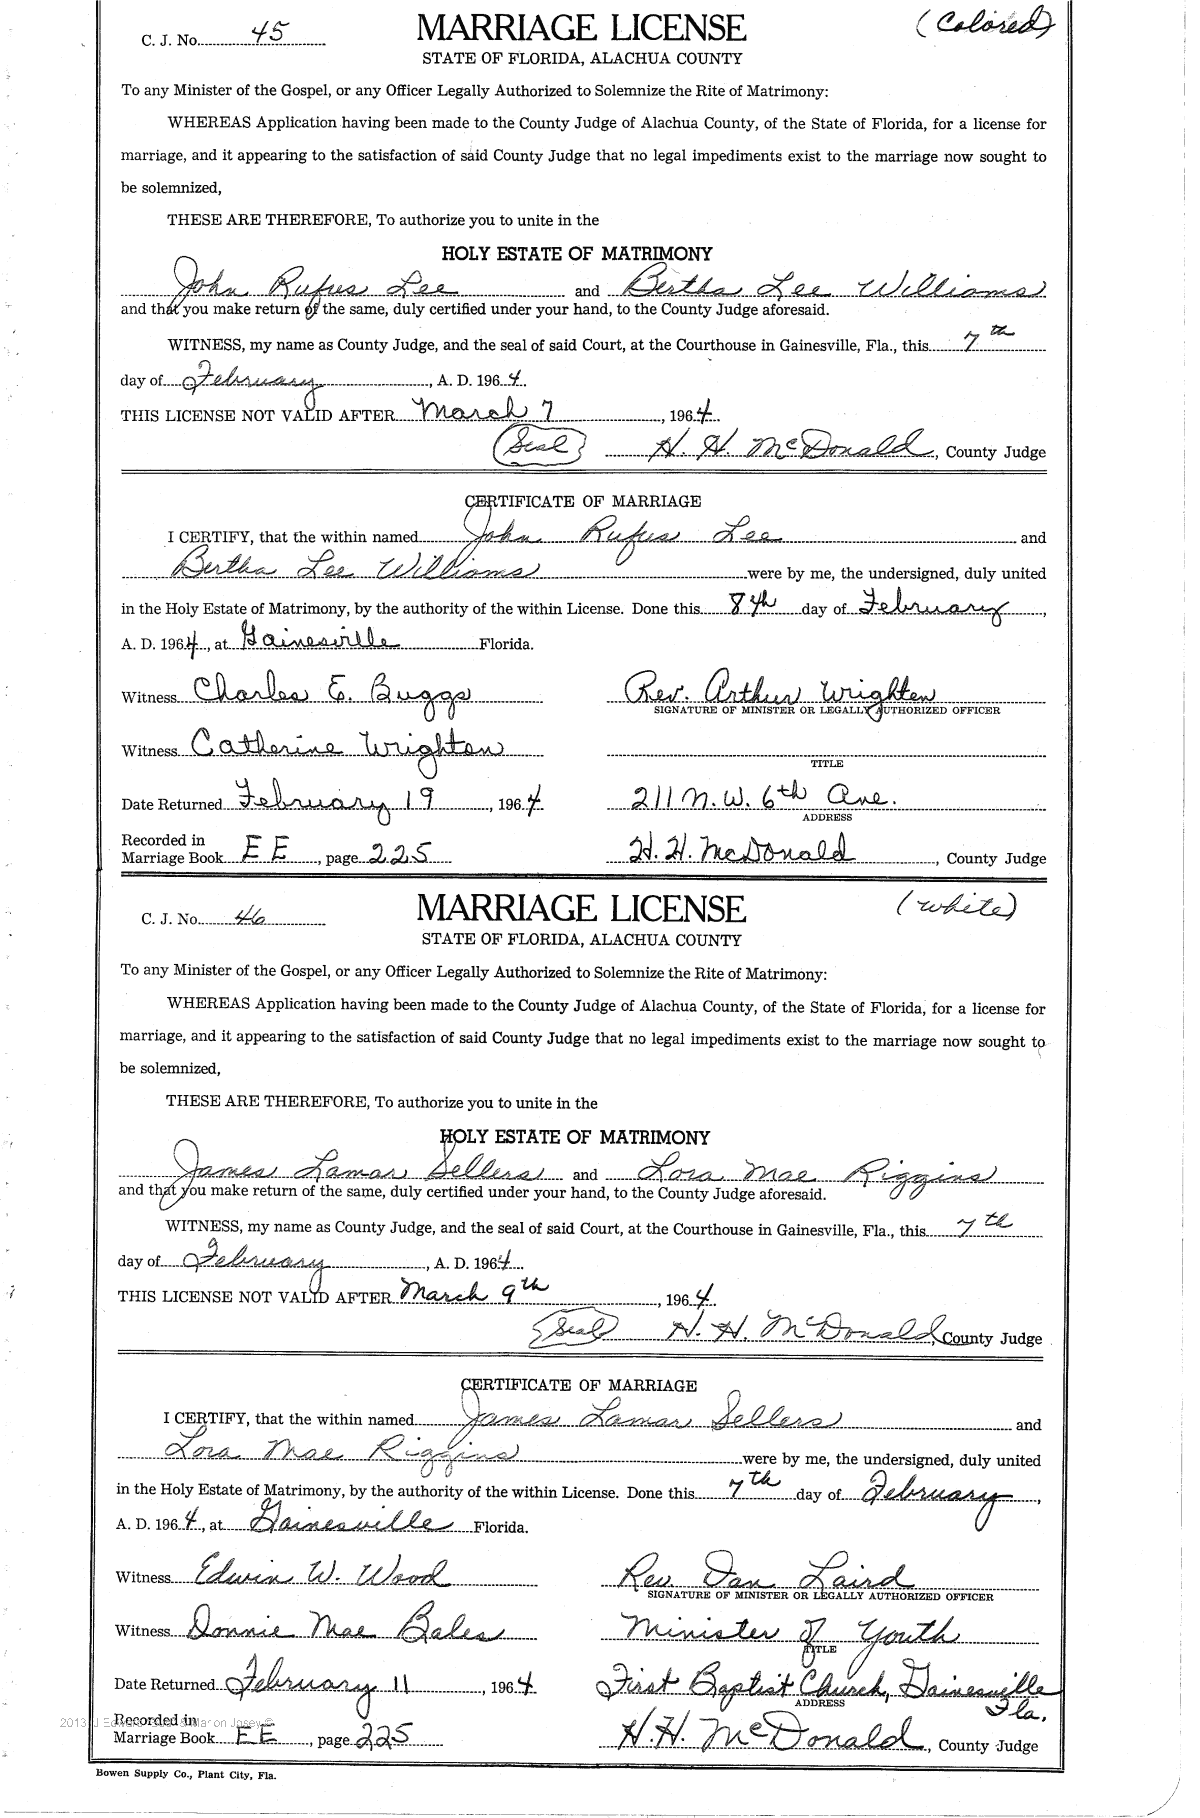 C. J. No. 45 MARRIAGE LICENSE (Colored)
STATE OF FLORIDA, ALACHUA COUNTY
To any Minister of the Gospel, or any Officer Legally Authorized to Solemnize the Rite of Matrimony:
WHEREAS Application having been made to the County Judge of Alachua County, of the State of Florida, for a license for
marriage, and it appearing to the satisfaction of said County Judge that no legal impediments exist to the marriage now sought to
be solemnized,
THESE ARE THEREFORE, To authorize you to unite in the
HOLY ESTATE OF MATRIMONY
John Rufus Lee and Bertha Lee Williams
and that you make return of the same, duly certified under your hand, to the County Judge aforesaid.
WITNESS, my name as County Judge, and the seal of said Court, at the Courthouse in Gainesville, Fla., this 7th
day of February, A. D. 1964.
THIS LICENSE NOT VALID AFTER March 7, 1964.
(Seal) H. H. McDonald, County Judge
CERTIFICATE OF MARRIAGE
I CERTIFY, that the within named John Rufus Lee and
Bertha Lee Williams were by me, the undersigned, duly united
in the Holy Estate of Matrimony, by the authority of the within License. Done this 8th day of February,
A. D. 1964, at Gainesville Florida.
Witness Charles E. Buggs Rev. Arthur Wrighten
SIGNATURE OF MINISTER OR LEGALLY AUTHORIZED OFFICER
Witness Catherine Wrighten
TITLE
Date Returned February 19, 1964 211 N. W. 6th Ave.
ADDRESS
Recorded in
Marriage Book EE, page 225 H. H. McDonald, County Judge
C. J. No. 46 MARRIAGE LICENSE (White)
STATE OF FLORIDA, ALACHUA COUNTY
To any Minister of the Gospel, or any Officer Legally Authorized to Solemnize the Rite of Matrimony:
WHEREAS Application having been made to the County Judge of Alachua County, of the State of Florida, for a license for
marriage, and it appearing to the satisfaction of said County Judge that no legal impediments exist to the marriage now sought to
be solemnized,
THESE ARE THEREFORE, To authorize you to unite in the
HOLY ESTATE OF MATRIMONY
James Lamar Sellers and Lora Mae Riggins
and that you make return of the same, duly certified under your hand, to the County Judge aforesaid.
WITNESS, my name as County Judge, and the seal of said Court, at the Courthouse in Gainesville, Fla., this 7th
day of February, A. D. 1964.
THIS LICENSE NOT VALID AFTER March 9th, 1964.
(Seal) H. H. McDonald, County Judge
CERTIFICATE OF MARRIAGE
I CERTIFY, that the within named James Lamar Sellers and
Lora Mae Riggins were by me, the undersigned, duly united
in the Holy Estate of Matrimony, by the authority of the within License. Done this 7th day of February,
A. D. 1964, at Gainesville Florida.
Witness Edwin W. Wood Rev. Dan Laird
SIGNATURE OF MINISTER OR LEGALLY AUTHORIZED OFFICER
Witness Donnie Mae Bales Minister of Youth
TITLE
Date Returned February 11, 1964 First Baptist Church, Gainesville
ADDRESS Fla.
Recorded in
Marriage Book EE, page 225 H. H. McDonald, County Judge
Bowen Supply Co., Plant City, Fla.